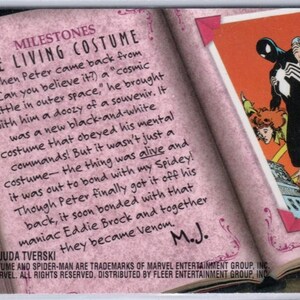 MILESTONES
E LIVING COSTUME
hen Peter came back from
Can you believe it?) a "cosmic
ttle in outer space," he brought
ith him a doozy of a souvenir. It
was a new black-and-white
costume that obeyed his mental
commands! But it wasn't just a
costume— the thing was alive and
it was out to bond with my Spidey!
Though Peter finally got it off his
back, it soon bonded with that
maniac Eddie Brock and together
they became Venom.
M.J.
JUDA TVERSKI
TUME AND SPIDER-MAN ARE TRADEMARKS OF MARVEL ENTERTAINMENT GROUP, INC.
VEL. ALL RIGHTS RESERVED. DISTRIBUTED BY FLEER ENTERTAINMENT GROUP, INC.